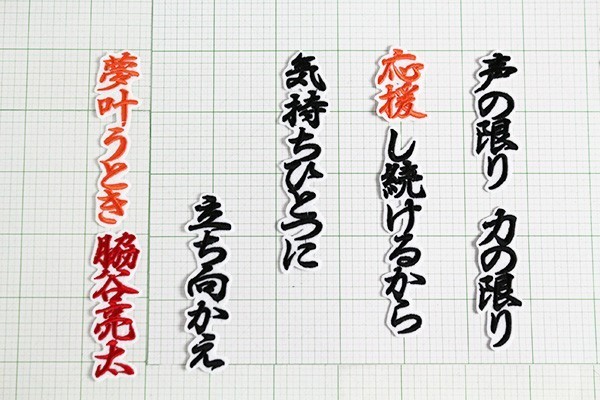 声の限り 力の限り
応援し続けるから
気持ちひとつに
立ち向かえ
夢叶うとき 脇谷亮太